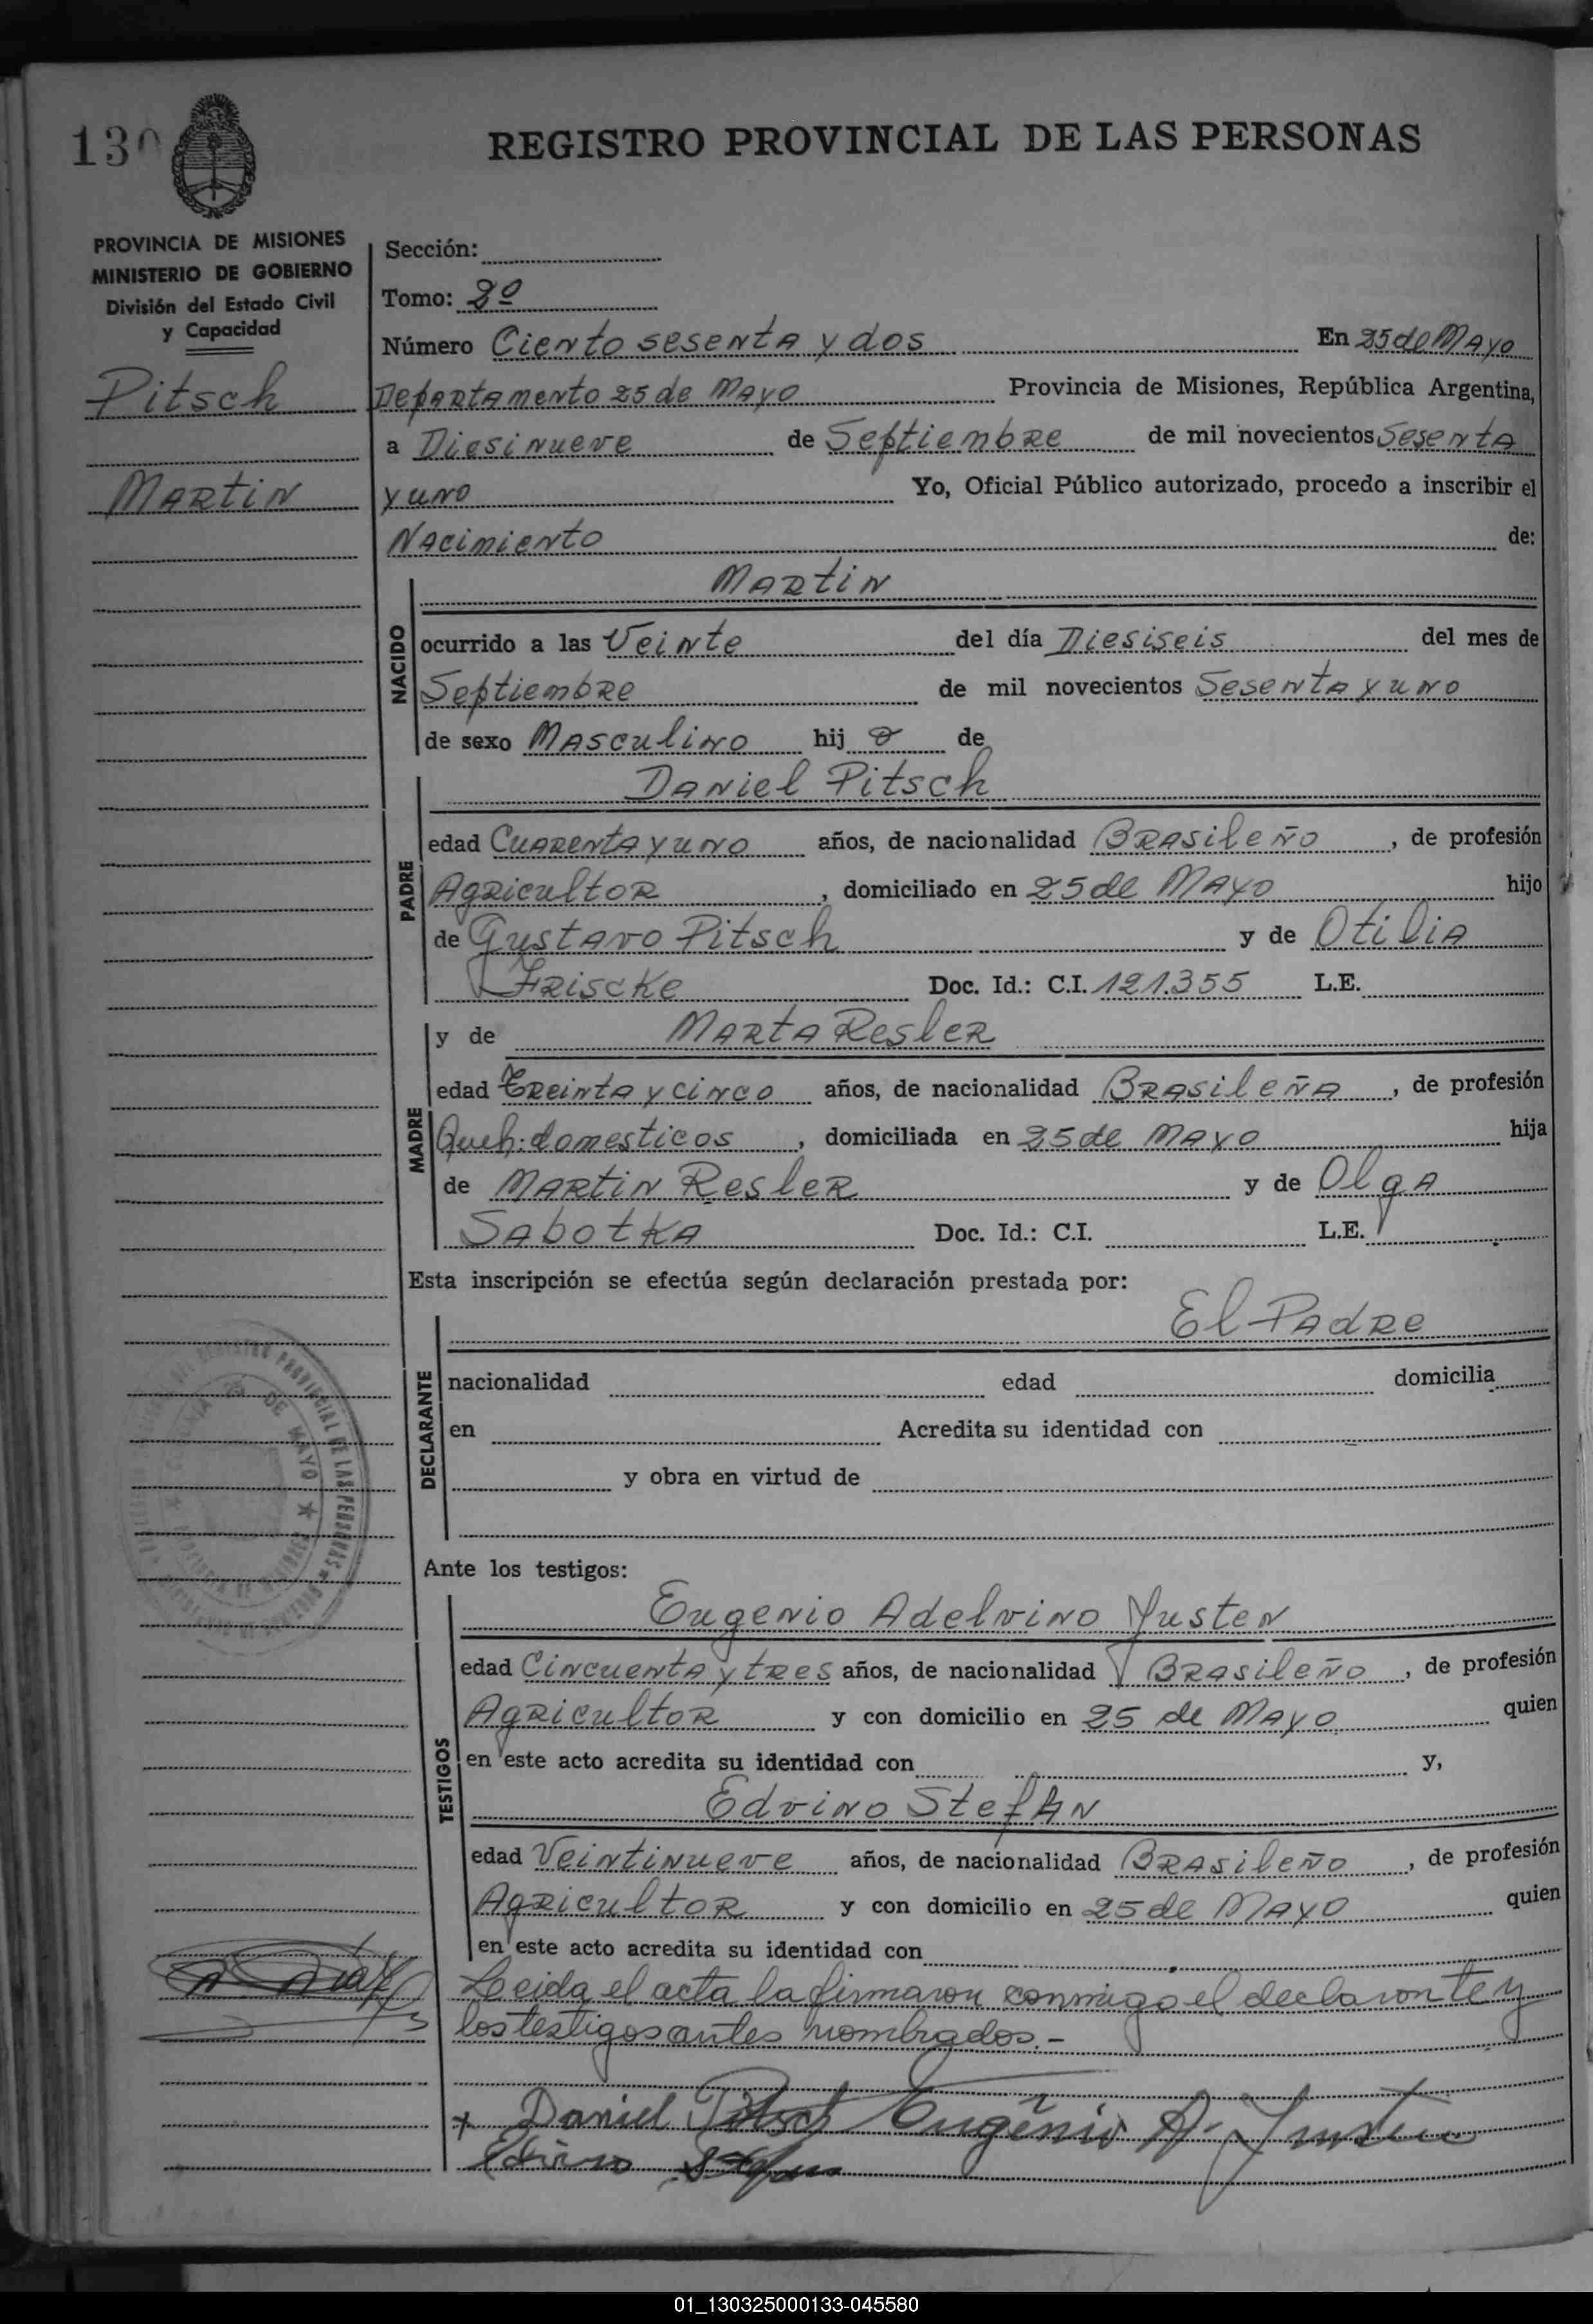 130
REGISTRO PROVINCIAL DE LAS PERSONAS
PROVINCIA DE MISIONES
MINISTERIO DE GOBIERNO
División del Estado Civil
y Capacidad
Pitsch
Martin
Sección:
Tomo: 2º
Número Ciento sesenta y dos En 25 de Mayo
Departamento 25 de Mayo Provincia de Misiones, República Argentina,
a Diesinueve de Septiembre de mil novecientos Sesenta
y uno Yo, Oficial Público autorizado, procedo a inscribir el
Nacimiento de:
NACIDO
Martin
ocurrido a las Veinte del día Diesiseis del mes de
Septiembre de mil novecientos Sesenta y uno
de sexo Masculino hij o de
PADRE
Daniel Pitsch
edad Cuarenta y uno años, de nacionalidad Brasileño, de profesión
Agricultor, domiciliado en 25 de Mayo hijo
de Gustavo Pitsch y de Otilia
Friscke Doc. Id.: C.I. 121.355 L.E.
MADRE
y de Marta Resler
edad Treinta y cinco años, de nacionalidad Brasileña, de profesión
Queh: domesticos, domiciliada en 25 de Mayo hija
de Martin Resler y de Olga
Sabotka Doc. Id.: C.I. L.E.
Esta inscripción se efectúa según declaración prestada por:
DECLARANTE
El Padre
nacionalidad edad domicilia
en Acredita su identidad con
y obra en virtud de
Ante los testigos:
TESTIGOS
Eugenio Adelvino Yusten
edad Cincuenta y tres años, de nacionalidad Brasileño, de profesión
Agricultor y con domicilio en 25 de Mayo quien
en este acto acredita su identidad con y,
Edvino Stefan
edad Veintinueve años, de nacionalidad Brasileño, de profesión
Agricultor y con domicilio en 25 de Mayo quien
en este acto acredita su identidad con
Leida el acta la firmaron conmigo el declarante y
los testigos antes nombrados.-
x Daniel Pitsch Eugênio A.
Edvino Stefan
01_130325000133-045580